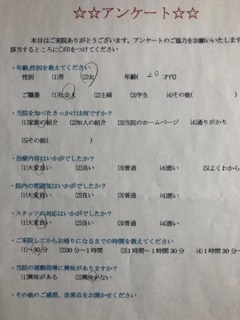 ☆☆アンケート☆☆
本日はご来院ありがとうございます。アンケートのご協力をお願いいたします
該当するところに○印をつけてください
・年齢,性別を教えてください
性別 (1)男 (2)女 年齢( 20 才代)
ご職業 (1)社会人 (2)主婦 (3)学生 (4)その他(
・当院を知ったきっかけは何ですか?
(1)家族の紹介 (2)知人の紹介 (3)当院のホームページ (4)通りがかり
(5)その他( )
・治療内容はいかがでしたか?
(1)大変良い (2)良い (3)普通 (4)悪い (5)よくわから
・院内の雰囲気はいかがでしたか?
(1)大変良い (2)良い (3)普通 (4)悪い
・スタッフの対応はいかがでしたか?
(1)大変良い (2)良い (3)普通 (4)悪い
・ご来院してからお帰りになるまでの時間を教えてください
(1)~30分 (2)30分~1時間 (3)1時間~1時間30分 (4)1時間30分~
・当院の運動指導に興味がありますか?
(1)興味がある (2)興味がない
・その他のご感想、改善点をお聞かせください